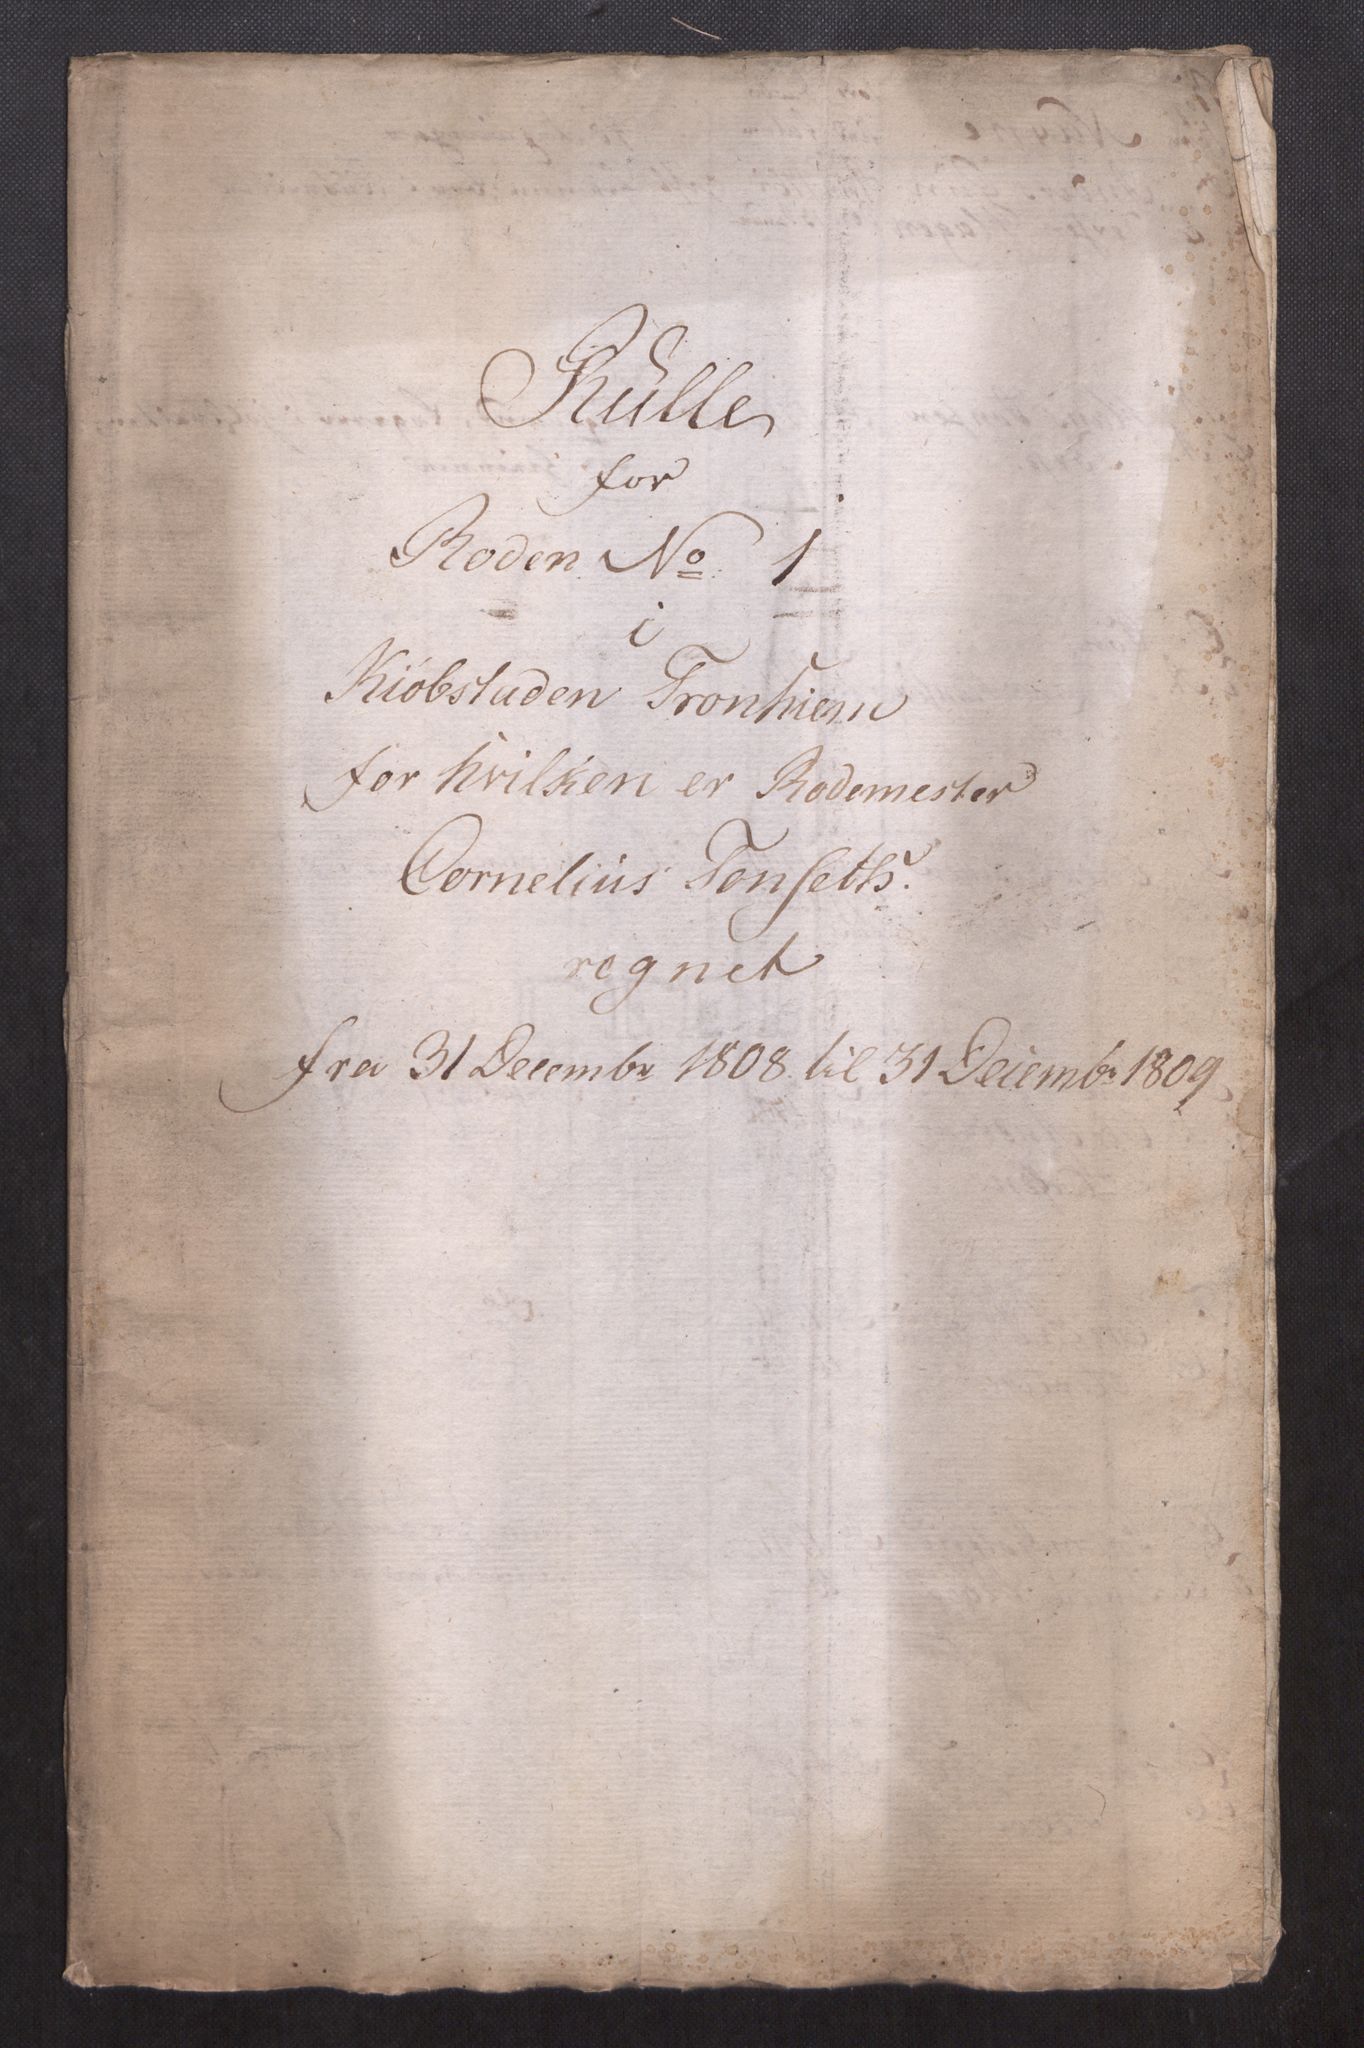 Rulle
for
Roden No 1
i
Kiöbstaden Tronhiem
for hvilken er Rodemester
Cornelius Tonseth
regnet
fra 31 Decembr 1808 til 31 Decembr 1809